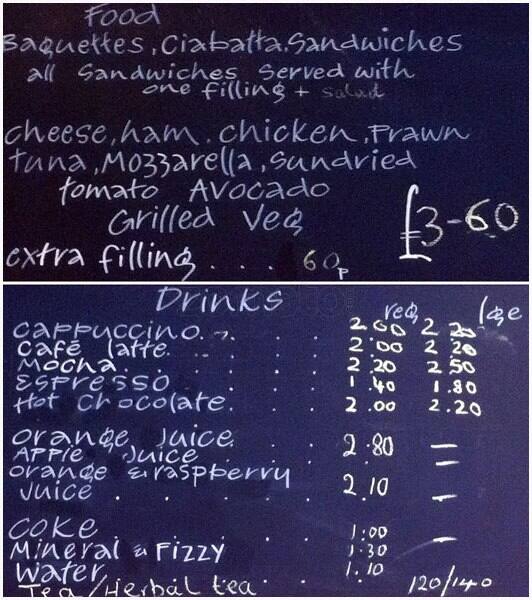 Food
Baquettes, Ciabatta, Sandwiches
all Sandwiches Served with
one filling + salad
cheese, ham, chicken, Prawn
tuna, Mozzarella, Sundried
tomato Avocado
Grilled Veg
£3-60
extra filling . . . 60p
Drinks reg lge
cappuccino . . . . 2.00 2.20
Café latte . . . 2.00 2 20
Mocha . . . . 2.20 2.50
Espresso . . . 1.40 1.80
Hot Chocolate . . . 2.00 2.20
orange Juice . . . 2.80 —
Apple Juice . . . —
orange & raspberry
Juice . . . . . 2.10 —
Coke . . . 1.00 —
Mineral & Fizzy . . 1.30
Water . . . 1.10
Tea/Herbal tea . . 120/140